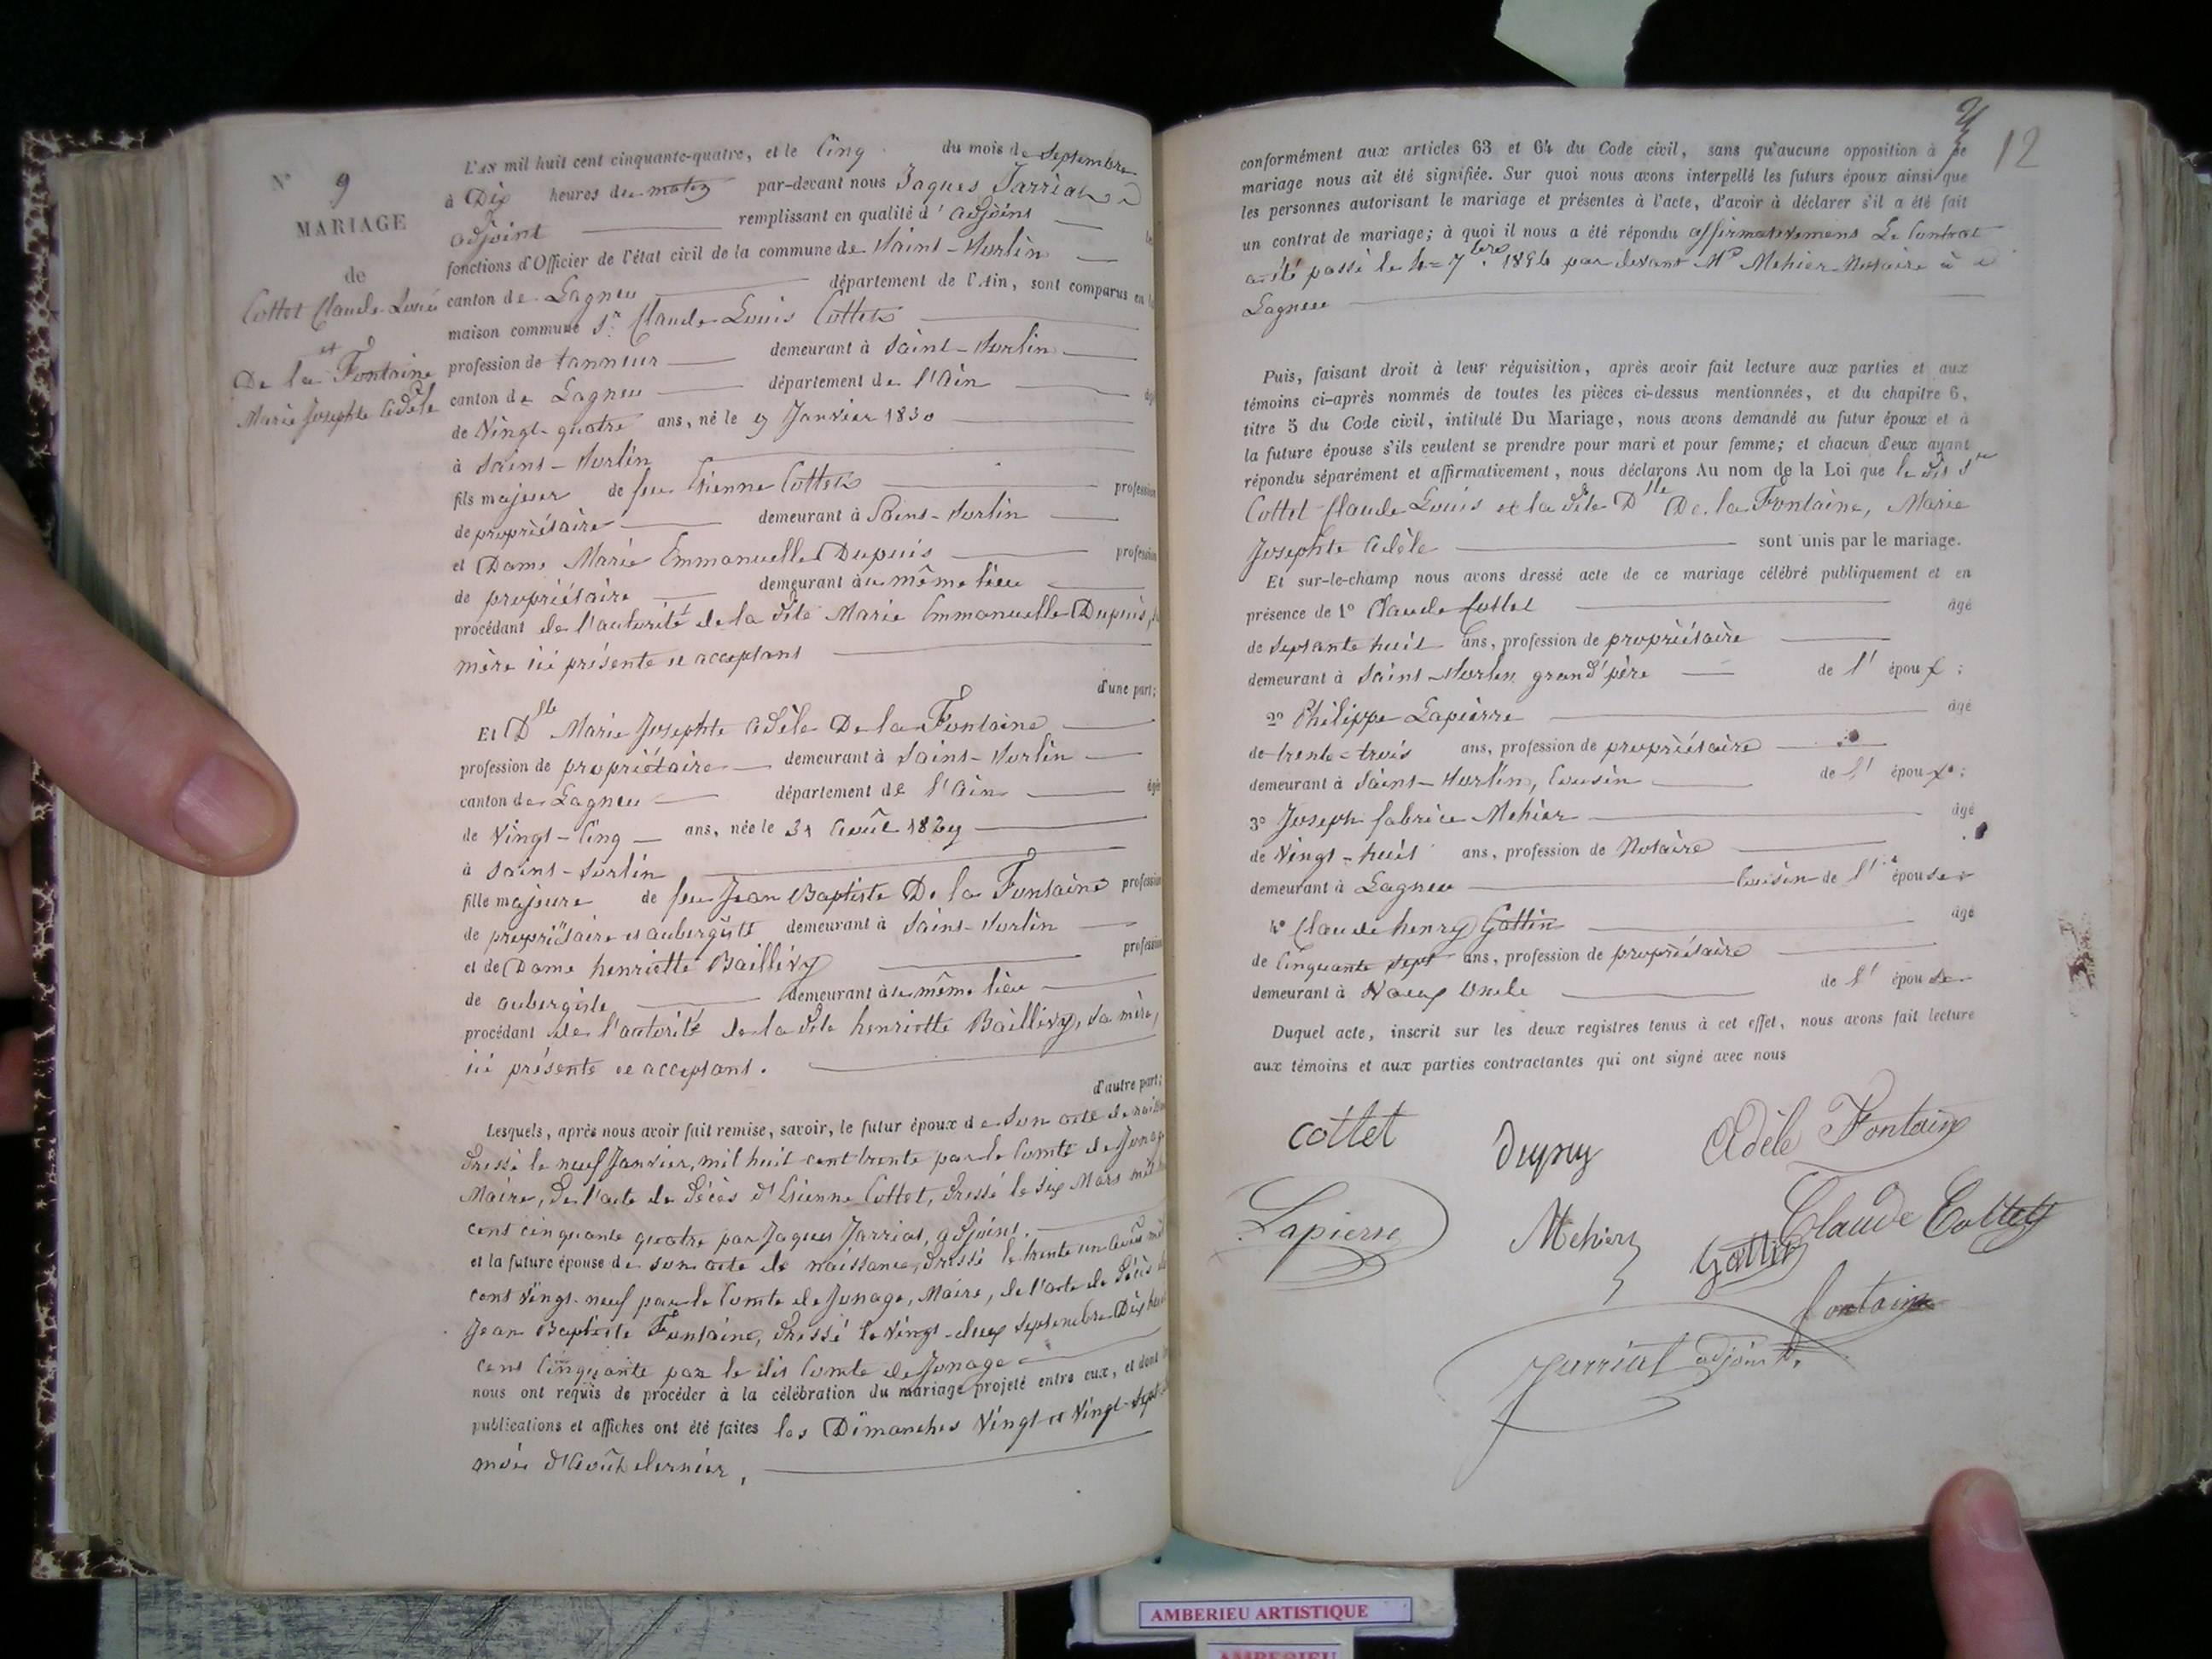 N° 9
MARIAGE
de
Cottet Claude Louis
et
De la Fontaine
Marie Josephte Adèle
L'AN mil huit cent cinquante-quatre, et le Cinq du mois de Septembre
à Dix heures du matin par-devant nous Jaques Jarriat
adjoint remplissant en qualité d'adjoint
fonctions d'Officier de l'état civil de la commune de Saint-Sorlin
canton de Lagneu département de l'Ain, sont comparus en
maison commune Sr. Claude Louis Cottet
profession de tanneur demeurant à Saint-Sorlin
canton de Lagneu département de l'Ain
de Vingt-quatre ans, né le 9 Janvier 1830
à Saint-Sorlin
fils majeur de feu Etienne Cottet profession
de propriétaire demeurant à Saint-Sorlin
et Dame Marie Emmanuelle Dupuis profession
de propriétaire demeurant au même lieu
procédant de l'autorité de la dite Marie Emmanuelle Dupuis,
mère ici présente et acceptant
d'une part;
Et Dlle Marie Josephte Adèle De la Fontaine
profession de propriétaire demeurant à Saint-Sorlin
canton de Lagneu département de l'Ain âgé
de Vingt-Cinq ans, née le 31 Août 1829
à Saint-Sorlin
fille majeure de feu Jean Baptiste De la Fontaine profession
de propriétaire et aubergiste demeurant à Saint-Sorlin
et de Dame henriette Baillivy profession
de aubergiste demeurant au même lieu
procédant de l'autorité de la dite henriette Baillivy, sa mère,
ici présente et acceptant.
d'autre part;
Lesquels, après nous avoir fait remise, savoir, le futur époux de Son acte de
dressé le neuf Janvier, mil huit cent trente par le Comte de Jonage
Maire, De l'acte de Décès d'Etienne Cottet, dressé le six Mars mil
cent cinquante quatre par Jaques Jarriat, adjoint.
et la future épouse de son acte de naissance, dressé le trente un Août mil
cent vingt-neuf par le Comte de Jonage, Maire, de l'acte de Décès
Jean Baptiste Fontaine, dressé le vingt-deux Septembre Dix huit
cent Cinquante par le dit Comte de Jonage
nous ont requis de procéder à la célébration du mariage projeté entre eux, et dont
publications et affiches ont été faites les Dimanches Vingt et Vingt-Sept
mois d'Août dernier,
12
conformément aux articles 63 et 64 du Code civil, sans qu'aucune opposition à ce
mariage nous ait été signifiée. Sur quoi nous avons interpellé les futurs époux ainsi que
les personnes autorisant le mariage et présentes à l'acte, d'avoir à déclarer s'il a été fait
un contrat de mariage; à quoi il nous a été répondu affirmativement Le Contrat
a été passé le 4 7bre 1854 par devant Me Mehier Notaire à
Lagneu
Puis, faisant droit à leur réquisition, après avoir fait lecture aux parties et aux
témoins ci-après nommés de toutes les pièces ci-dessus mentionnées, et du chapitre 6,
titre 5 du Code civil, intitulé Du Mariage, nous avons demandé au futur époux et à
la future épouse s'ils veulent se prendre pour mari et pour femme; et chacun d'eux ayant
répondu séparément et affirmativement, nous déclarons Au nom de la Loi que le dit Sr
Cottet Claude Louis et la dite Dlle De la Fontaine, Marie
Josephte Adèle sont unis par le mariage.
Et sur-le-champ nous avons dressé acte de ce mariage célébré publiquement et en
présence de 1° Claude Cottet âgé
de Septante huit ans, profession de propriétaire
demeurant à Saint-Sorlin grand'père de l'époux;
2° Philippe Lapierre âgé
de trente-trois ans, profession de propriétaire
demeurant à Saint-Sorlin, Cousin de l'époux;
3° Joseph fabrice Mehier âgé
de Vingt-huit ans, profession de Notaire
demeurant à Lagneu Cousin de l'épouse
4° Claude henry Gattin âgé
de Cinquante sept ans, profession de propriétaire
demeurant à Vaux Oncle de l'épouse
Duquel acte, inscrit sur les deux registres tenus à cet effet, nous avons fait lecture
aux témoins et aux parties contractantes qui ont signé avec nous
Cottet Dupuy Adèle Fontaine
Lapierre Mehier Gattin Claude Cottet
fontaine
Jarriat adjoint.
AMBERIEU ARTISTIQUE
AMBERIEU